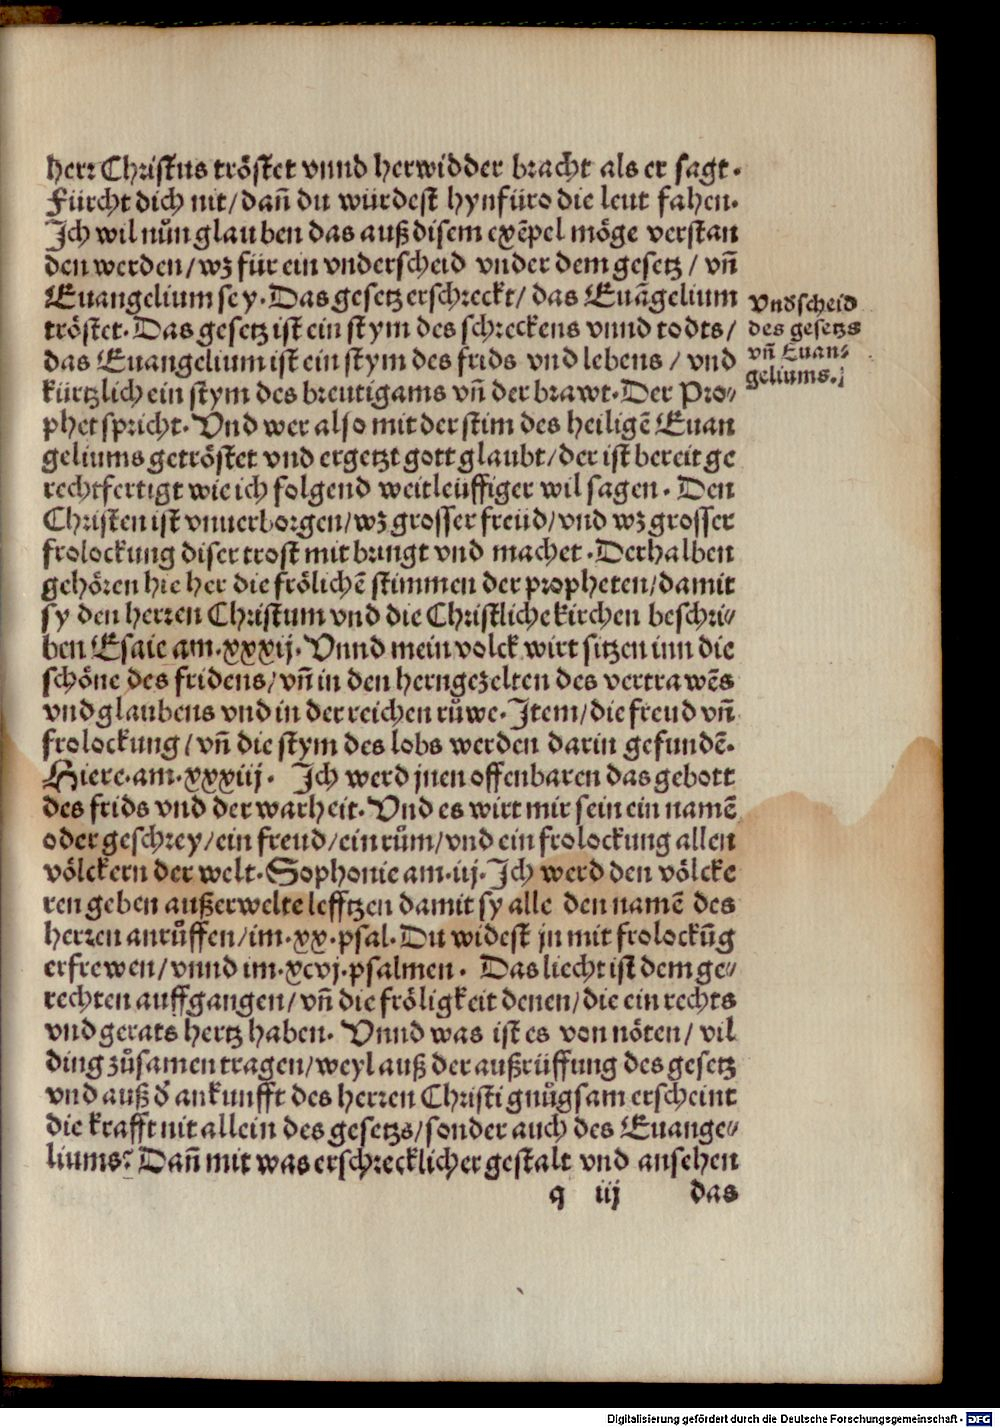 herr Christus tröstet vnnd herwidder bracht als er sagt.
Fürcht dich nit/ dañ du würdest hynfüro die leut fahen.
Ich wil nůn glauben das auß disem exẽpel möge verstan
den werden/ wz für ein vnderscheid vnder dem gesetz / vñ
Euangelium sey. Das gesetz erschreckt/ das Euãgelium
tröstet. Das gesetz ist ein stym des schreckens vnnd todts/
das Euangelium ist ein stym des frids vnd lebens / vnd
kürtzlich ein stym des breutigams vñ der brawt. Der Pro⸗
phet spricht. Vnd wer also mit der stim des heiligẽ Euan
geliums getröstet vnd ergetzt gott glaubt/ der ist bereit ge
rechtfertigt wie ich folgend weitleüffiger wil sagen. Den
Christen ist vnuerborgen/ wz grosser freüd/ vnd wz grosser
frolockung diser trost mit bringt vnd machet. Derhalben
gehören hie her die frölichẽ stimmen der propheten/ damit
sy den herren Christum vnd die Christliche kirchen beschri⸗
ben Esaie am. xxxij. Vnnd mein volck wirt sitzen inn die
schöne des fridens/ vñ in den herngezelten des vertrawẽs
vnd glaubens vnd in der reichen růwe. Item/ die freud vñ
frolockung / vñ die stym des lobs werden darin gefundẽ.
Hiere. am. xxxiij. Ich werd jnen offenbaren das gebott
des frids vnd der warheit. Vnd es wirt mir sein ein namẽ
oder geschrey/ ein freud/ ein rům/ vnd ein frolockung allen
völckern der welt. Sophonie am. iij. Ich werd den völcke
ren geben außerwelte lefftzen damit sy alle den namẽ des
herren anrůffen/ im. xx. psal. Du widest jn mit frolockũg
erfrewen/ vnnd im. xcvj. psalmen. Das liecht ist dem ge⸗
rechten auffgangen/ vñ die fröligkeit denen/ die ein rechts
vnd gerats hertz haben. Vnnd was ist es von nöten/ vil
ding zůsamen tragen/ weyl auß der außrüffung des gesetz
vnd auß d̛ ankunfft des herren Christi gnůgsam erscheint
die krafft nit allein des gesetzs/ sonder auch des Euange⸗
liums? Dañ mit was erschrecklicher gestalt vnd ansehen
q iij das
Vnd̛scheid
des gesetzs
vñ Euan⸗
geliums.
Digitalisierung gefördert durch die Deutsche Forschungsgemeinschaft - DFG